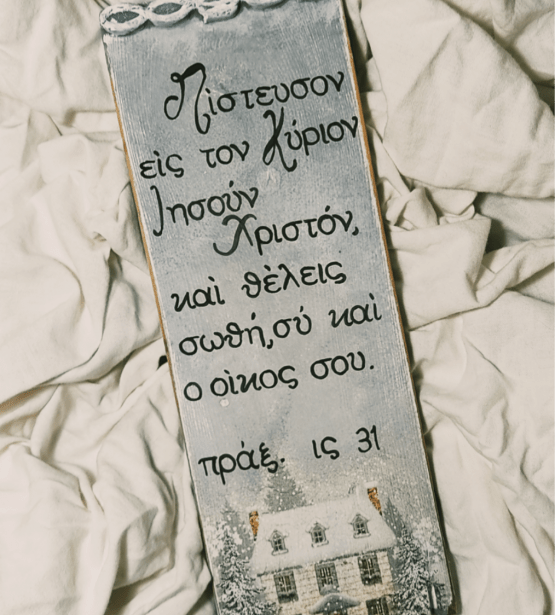 Πίστευσον
εἰς τον Κύριον
Ἰησούν
Χριστόν,
καὶ θέλεις
σωθή,σύ καὶ
ο οἶκος σου.
πράξ. ις 31